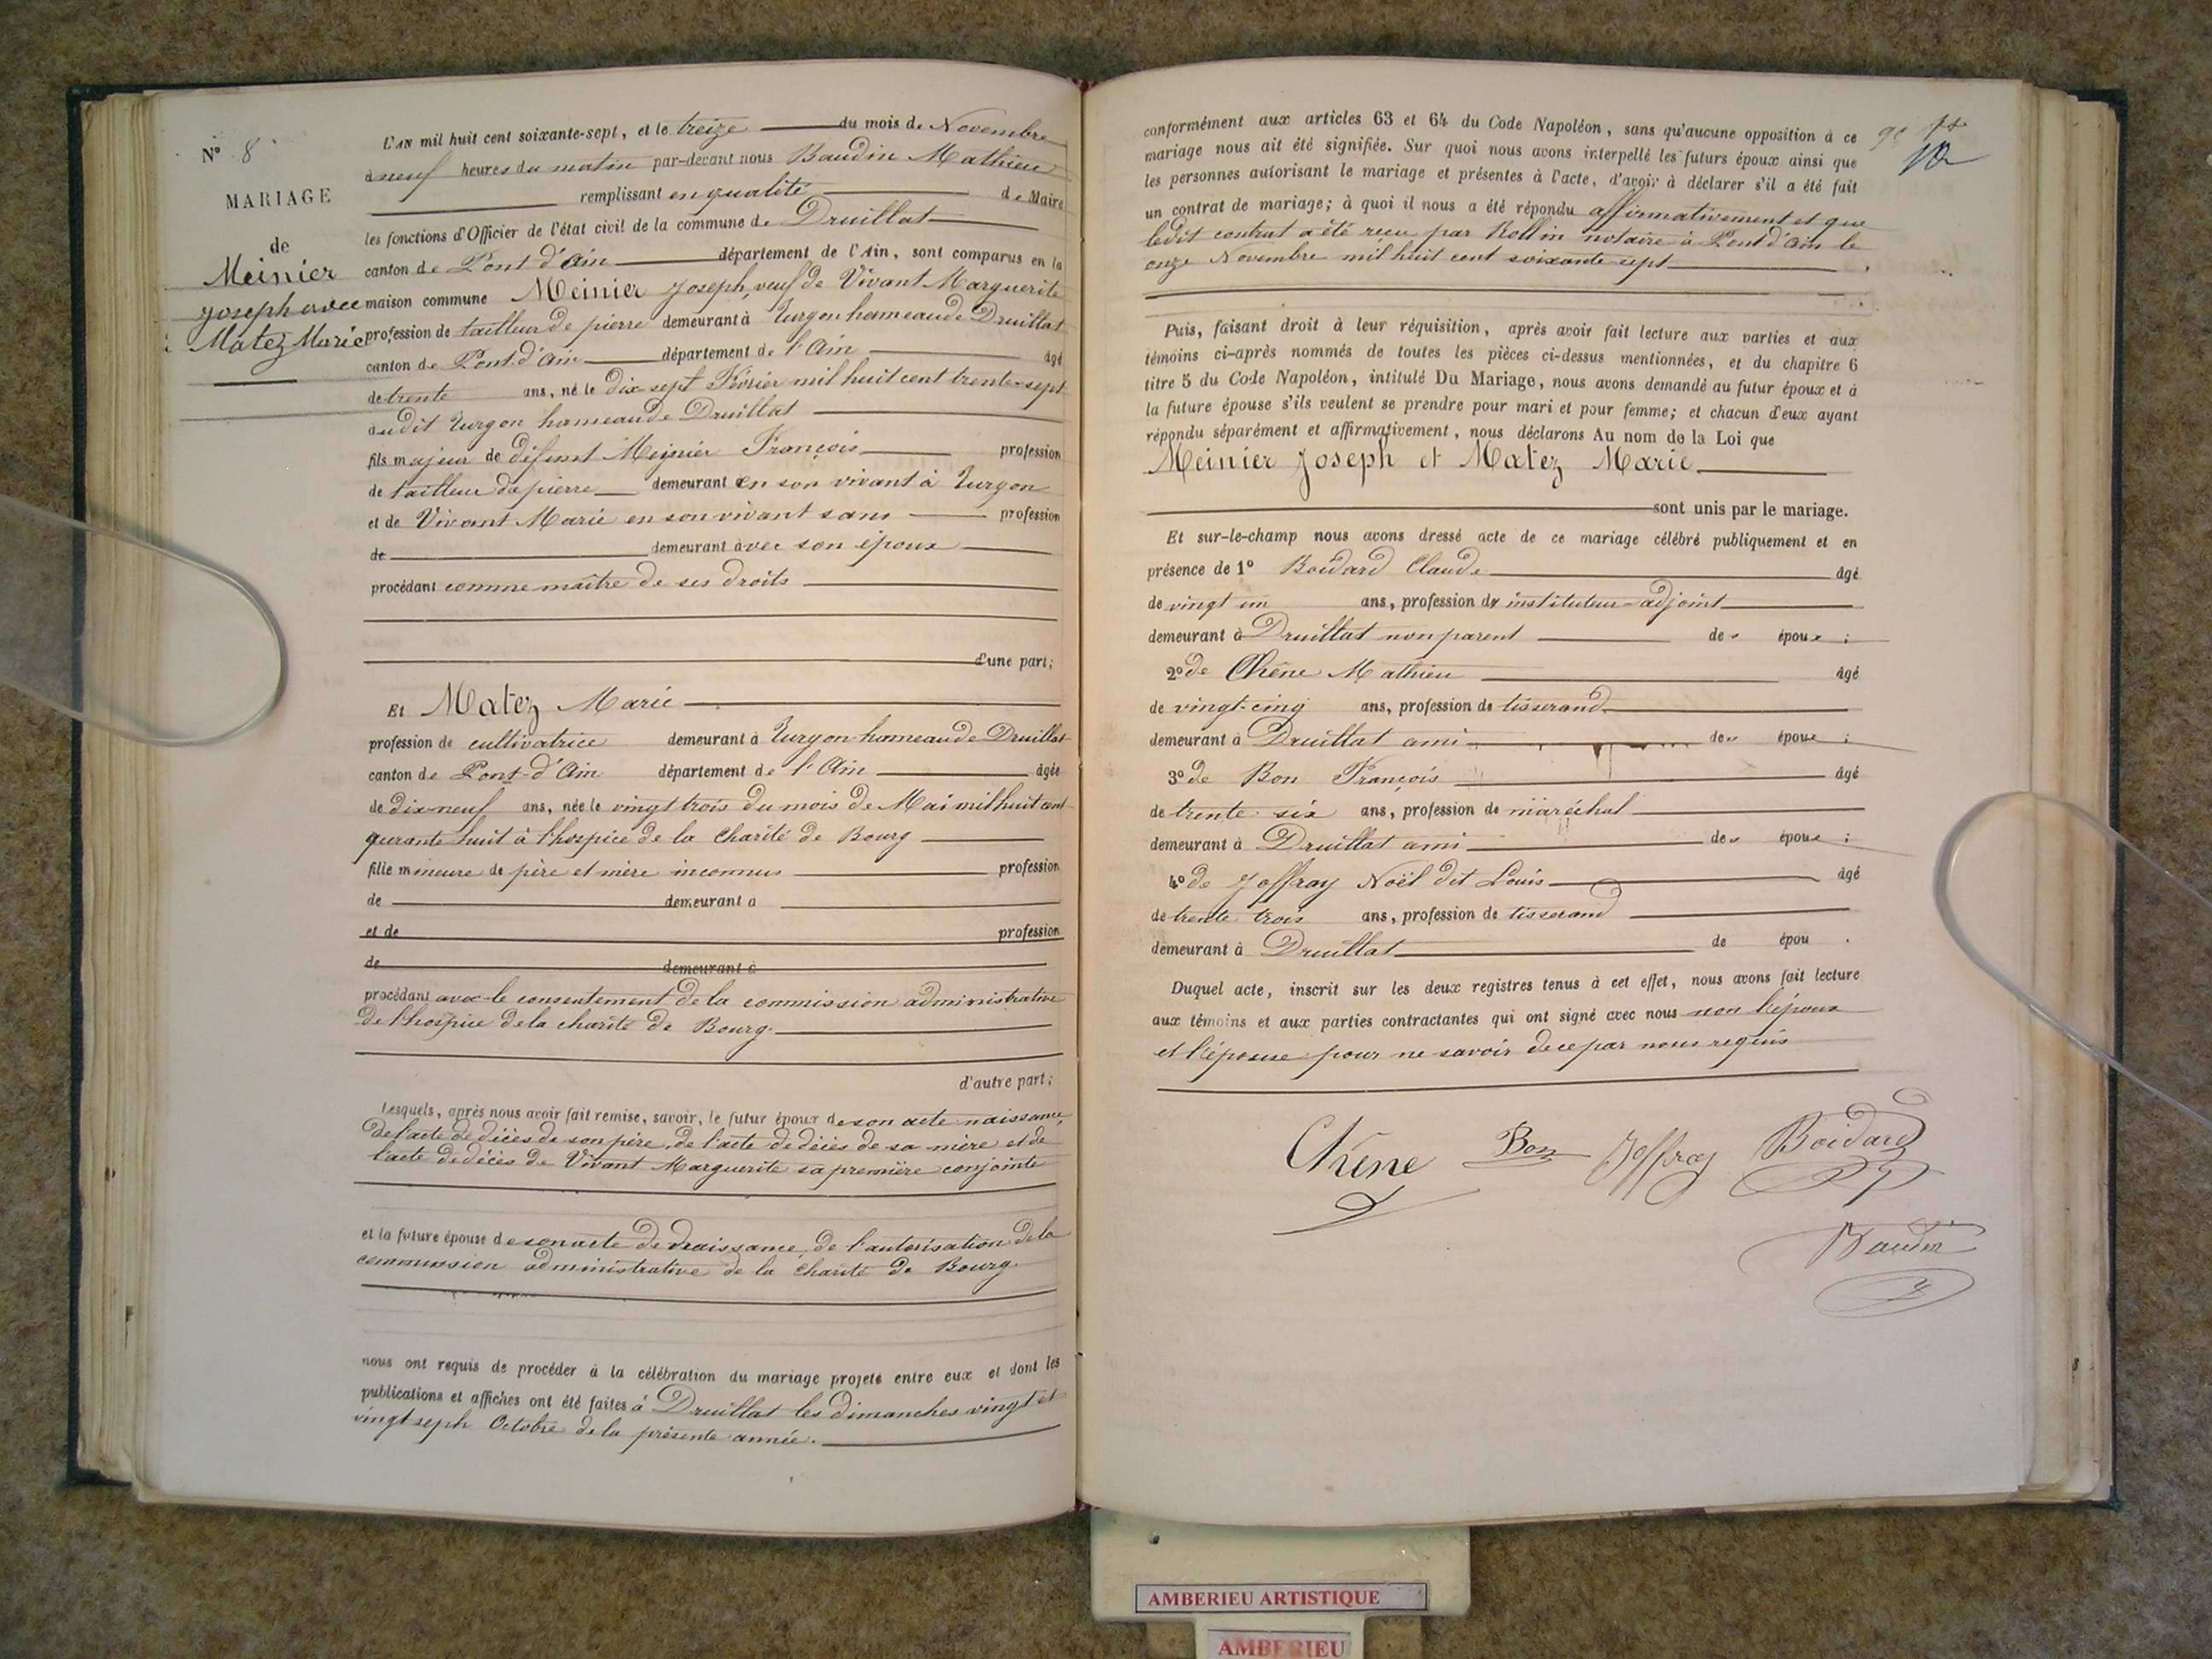 N° 8
MARIAGE
de
Meinier
Joseph avec
Matez Marie
L'AN mil huit cent soixante-sept, et le treize du mois de Novembre
à neuf heures du matin par-devant nous Baudin Mathieu
remplissant en qualité de Maire
les fonctions d'Officier de l'état civil de la commune de Druillat
canton de Pont d'Ain département de l'Ain, sont comparus en la
maison commune Meinier Joseph, veuf de Vivant Marguerite
profession de tailleur de pierre demeurant à Turgon hameau de Druillat
canton de Pont d'Ain département de l'Ain âgé
de trente ans, né le dix sept Février mil huit cent trente-sept
audit Turgon hameau de Druillat
fils majeur de défunt Meinier François profession
de tailleur de pierre demeurant en son vivant à Turgon
et de Vivant Marie en son vivant sans profession
de demeurant avec son époux
procédant comme maître de ses droits
d'une part;
Et Matez Marie
profession de cultivatrice demeurant à Turgon hameau de Druillat
canton de Pont-d'Ain département de l'Ain âgée
de dix-neuf ans, née le vingt trois du mois de Mai mil huit cent
quarante huit à l'hospice de la Charité de Bourg
fille mineure de père et mère inconnus profession
de demeurant à
et de profession
de demeurant à
procédant avec le consentement de la commission administrative
de l'hospice de la charité de Bourg.
d'autre part;
Lesquels, après nous avoir fait remise, savoir, le futur époux de son acte naissance,
de l'acte de décès de son père, de l'acte de décès de sa mère et de
l'acte de décès de Vivant Marguerite sa première conjointe
et la future épouse de son acte de naissance, de l'autorisation de la
commission administrative de la charité de Bourg.
nous ont requis de procéder à la célébration du mariage projeté entre eux et dont les
publications et affiches ont été faites à Druillat les dimanches vingt et
vingt seph Octobre de la présente année.
conformément aux articles 63 et 64 du Code Napoléon, sans qu'aucune opposition à ce
mariage nous ait été signifiée. Sur quoi nous avons interpellé les futurs époux ainsi que
les personnes autorisant le mariage et présentes à l'acte, d'avoir à déclarer s'il a été fait
un contrat de mariage; à quoi il nous a été répondu affirmativement et que
ledit contrat a été reçu par Rollin notaire à Pont d'Ain le
onze Novembre mil huit cent soixante sept
Puis, faisant droit à leur réquisition, après avoir fait lecture aux parties et aux
témoins ci-après nommés de toutes les pièces ci-dessus mentionnées, et du chapitre 6
titre 5 du Code Napoléon, intitulé Du Mariage, nous avons demandé au futur époux et à
la future épouse s'ils veulent se prendre pour mari et pour femme; et chacun d'eux ayant
répondu séparément et affirmativement, nous déclarons Au nom de la Loi que
Meinier Joseph et Matez Marie
sont unis par le mariage.
Et sur-le-champ nous avons dressé acte de ce mariage célébré publiquement et en
présence de 1° Boidard Claude âgé
de vingt un ans, profession de instituteur-adjoint
demeurant à Druillat non parent des époux;
2° de Chêne Mathieu âgé
de vingt-cinq ans, profession de tisserand
demeurant à Druillat ami des époux;
3° de Bon François âgé
de trente six ans, profession de maréchal
demeurant à Druillat ami des époux;
4° de Joffray Noël dit Louis âgé
de trente trois ans, profession de tisserand
demeurant à Druillat de épou .
Duquel acte, inscrit sur les deux registres tenus à cet effet, nous avons fait lecture
aux témoins et aux parties contractantes qui ont signé avec nous non l'époux
et l'épouse pour ne savoir de ce par nous requis
Chêne Bon Joffray Boidard
Baudin
AMBERIEU ARTISTIQUE
AMBERIEU